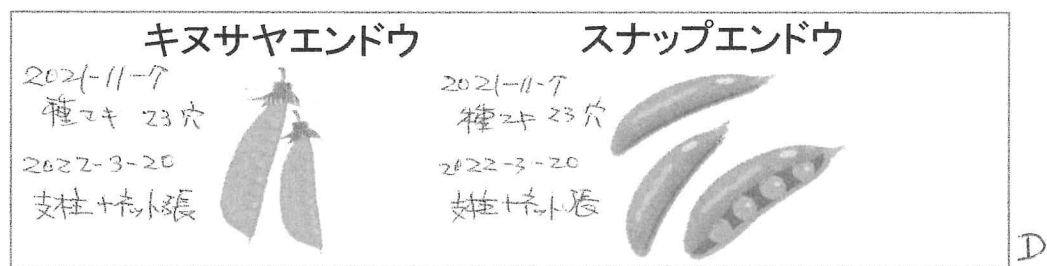 キヌサヤエンドウ
2021-11-7
種マキ 23穴
2022-3-20
支柱+ネット張
スナップエンドウ
2021-11-7
種マキ 23穴
2022-3-20
支柱+ネット張
D